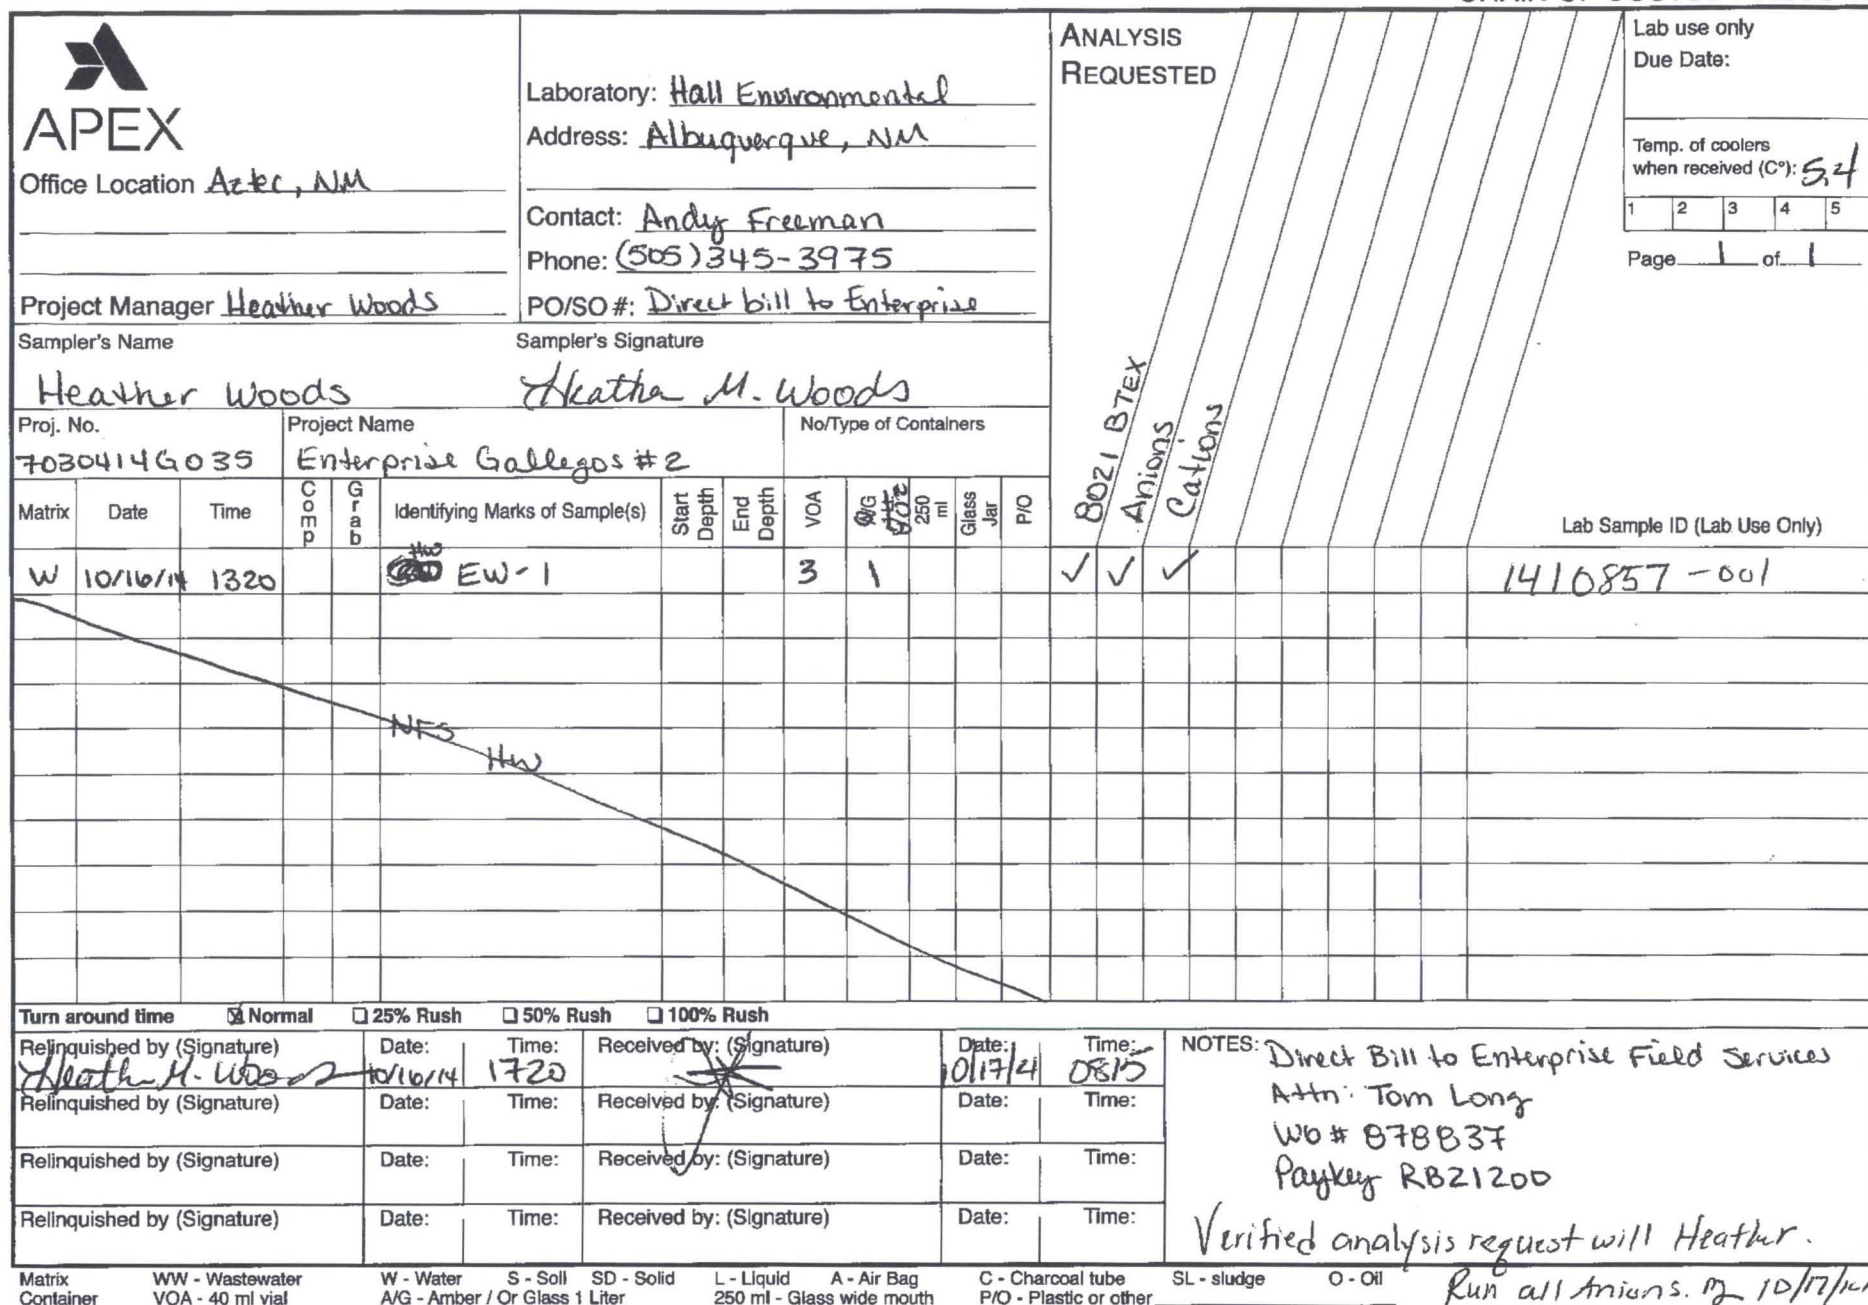 APEX
Office Location Aztec, NM
Project Manager Heather Woods
Laboratory: Hall Environmental
Address: Albuquerque, NM
Contact: Andy Freeman
Phone: (505)345-3975
PO/SO #: Direct bill to Enterprise
Sampler's Name
Heather Woods
Sampler's Signature
Heather M. Woods
ANALYSIS
REQUESTED
8021 BTEX
Anions
Cations
Lab use only
Due Date:
Temp. of coolers
when received (C°): 5.4
1 2 3 4 5
Page 1 of 1
Proj. No.
7030414G035
Project Name
Enterprise Gallegos #2
No/Type of Containers
Matrix Date Time Comp Grab Identifying Marks of Sample(s) Start Depth End Depth VOA A/G 250 ml Glass Jar P/O Lab Sample ID (Lab Use Only)
HW
W 10/16/14 1320 EW-1 3 1 ✓ ✓ ✓ 1410857-001
NFS
HW
Turn around time ☒ Normal ☐ 25% Rush ☐ 50% Rush ☐ 100% Rush
Relinquished by (Signature) Date: Time: Received by: (Signature) Date: Time:
Heather M. Woods 10/16/14 1720 10/17/14 0815
Relinquished by (Signature) Date: Time: Received by: (Signature) Date: Time:
Relinquished by (Signature) Date: Time: Received by: (Signature) Date: Time:
Relinquished by (Signature) Date: Time: Received by: (Signature) Date: Time:
NOTES: Direct Bill to Enterprise Field Services
Attn: Tom Long
WO # 878837
Paykey RB21200
Verified analysis request will Heather.
Run all Anions. 10/17/14
Matrix WW - Wastewater W - Water S - Soil SD - Solid L - Liquid A - Air Bag C - Charcoal tube SL - sludge O - Oil
Container VOA - 40 ml vial A/G - Amber / Or Glass 1 Liter 250 ml - Glass wide mouth P/O - Plastic or other